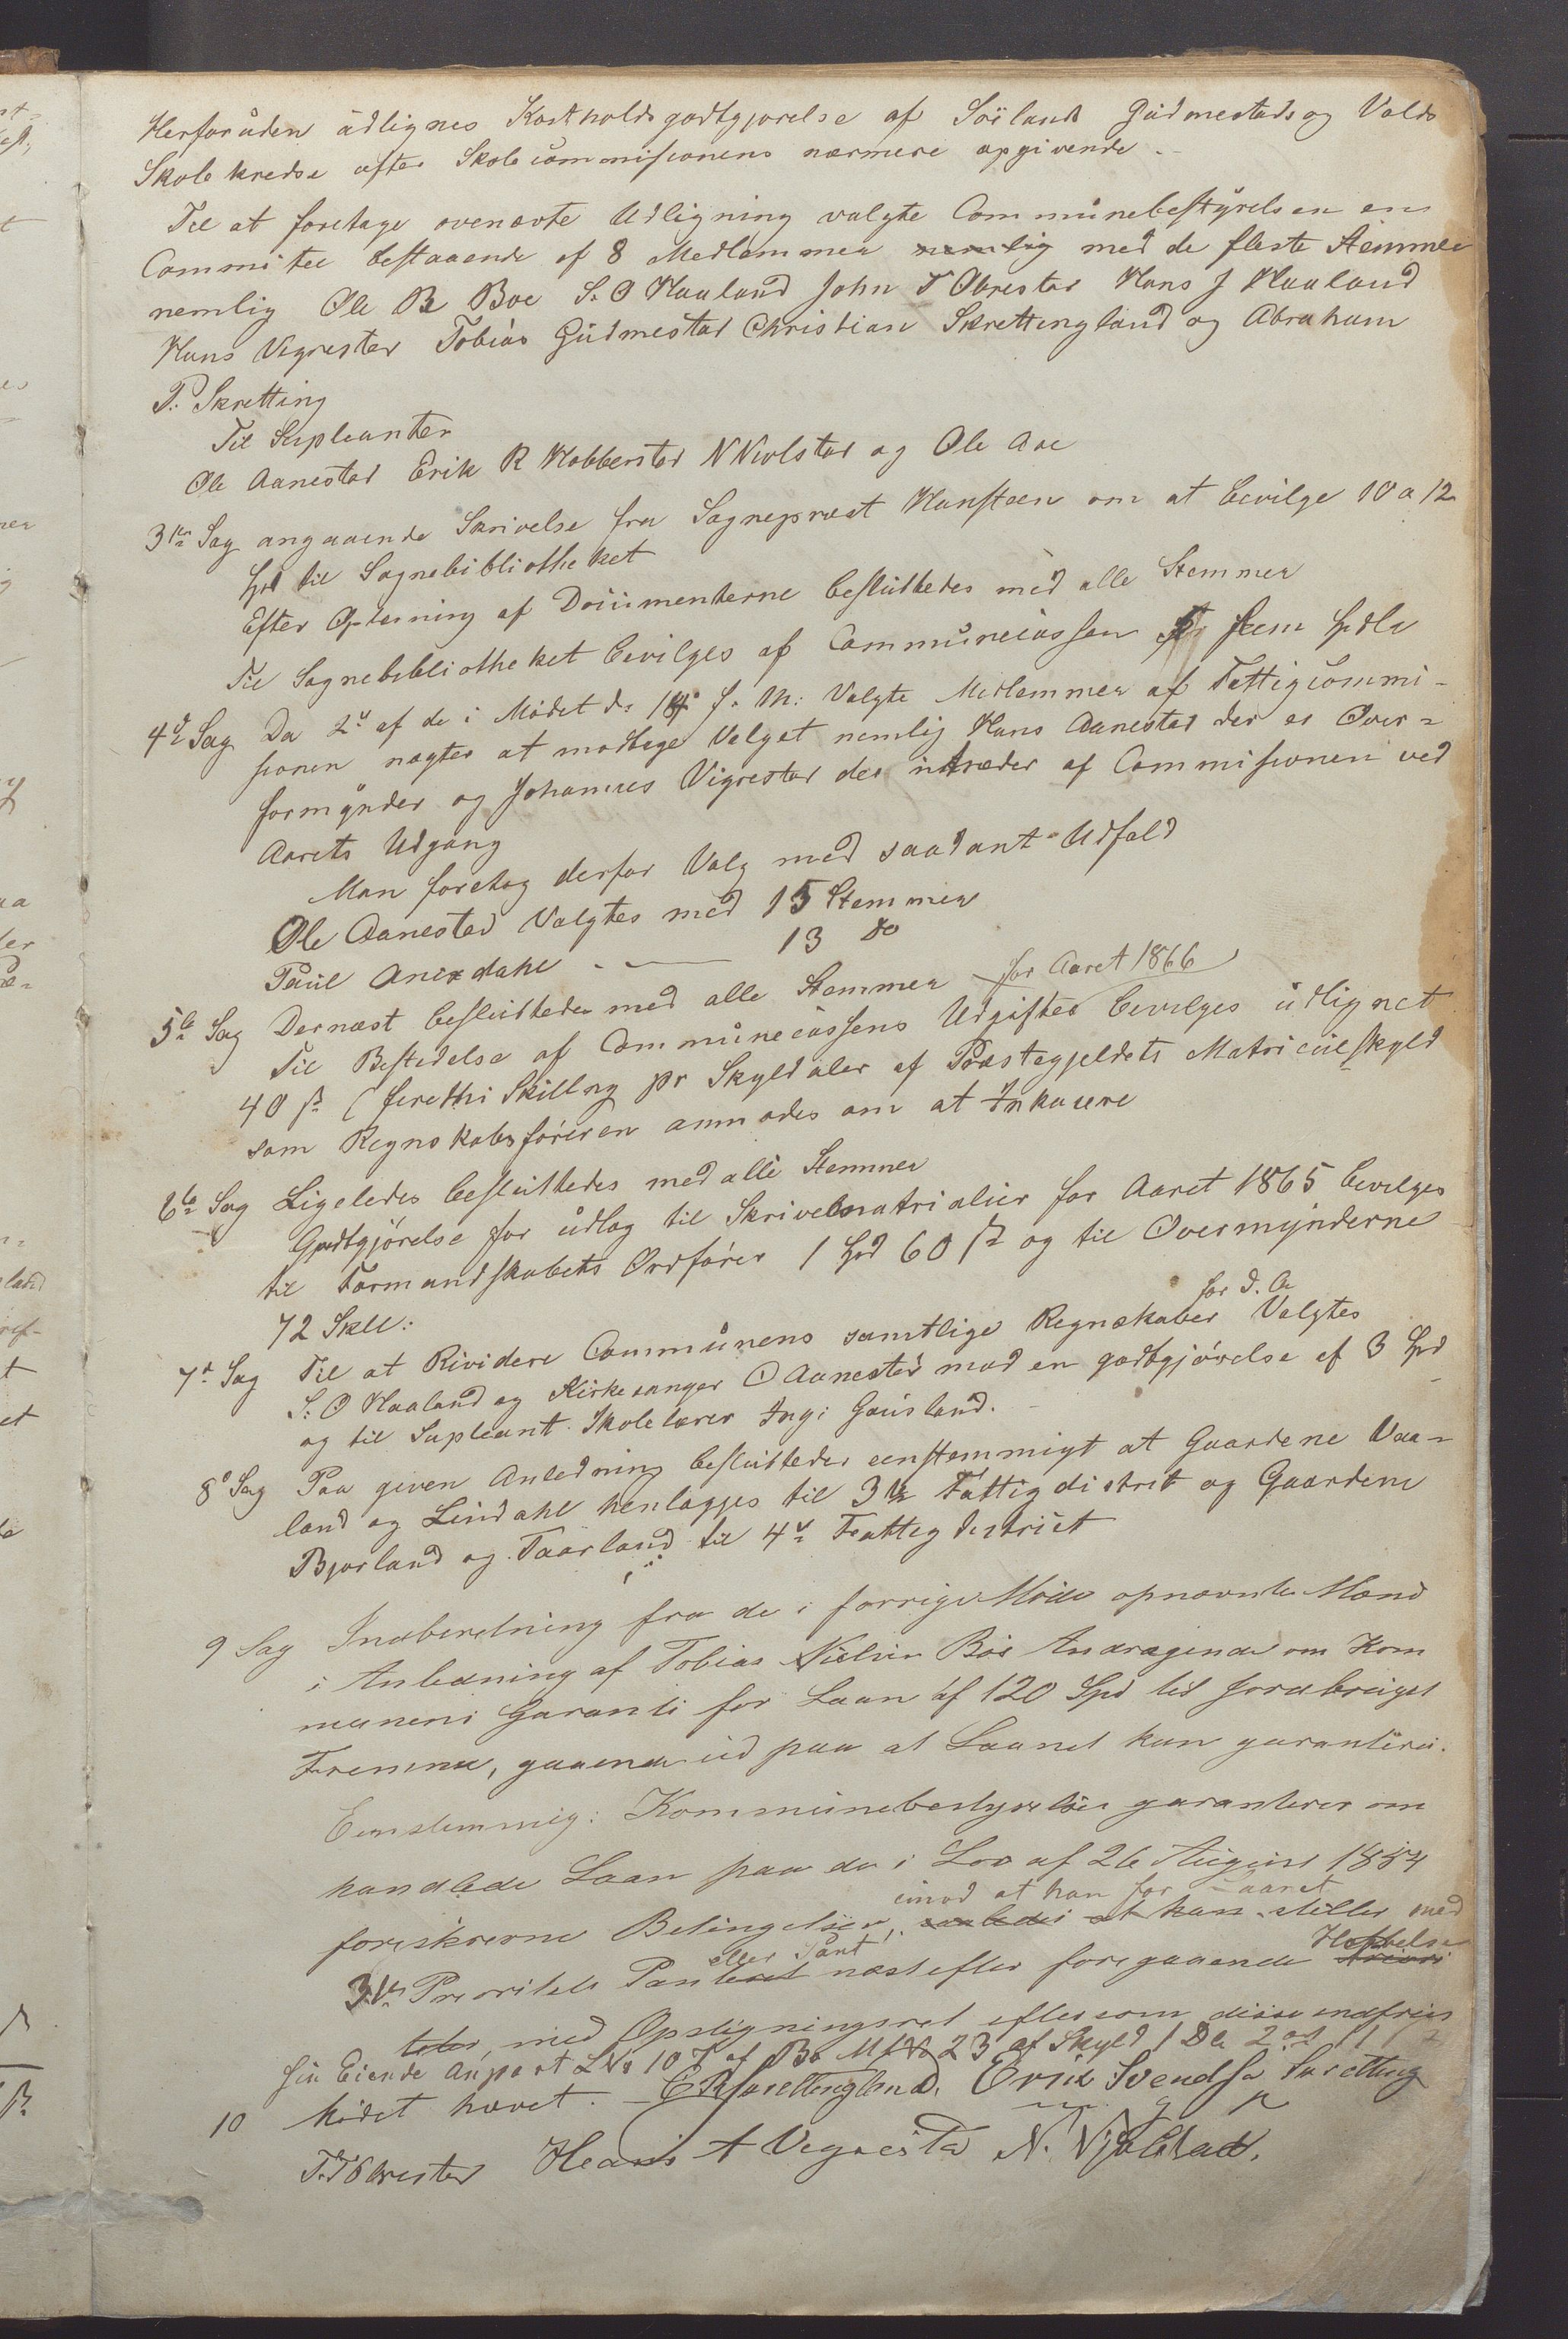 Herforuden udlignes Kostholdsgodtgjørelse af Söiland Gudmestads og Valds
Skole kredse efter Skolecommissionens nærmere opgivende.
Til at foretage ovenævte Udligning valgte Communebestyrelsen en
Commitee bestaaende af 8 Medlemmer nemlig med de fleste Stemmer
nemlig Ole B Boe S. O Haaland John T Obrestad Hans J Haaland
Hans Vigrestad Tobias Gudmestad Christian Skrettingland og Abraham
P. Skretting
Til Supleanter
Ole Aanestad Erik R Hobberstad N Niolstad og Ole Aae
3die Sag angaaende Skrivelse fra Sognepræst Hansteen om at bevilge 10 a 12
Spd til Sognebibliotheket
Efter Oplæsning af Documenterne besluttedes med alle Stemmer
Til Sognebibliotheket bevilges af Communecassen 5 fem Spdlr
4de Sag Da 2de af de i Mødet d: 14 f. M: Valgte Medlemmer af Fattigcommi-
sionen nægter at modtage Valget nemlig Hans Aanestad der er Over-
formynder og Johannes Vigrestad der udtræder af Commissionen ved
Aarets Udgang
Man foretog derfor Valg med saadant Udfald
Ole Aanestad Valgtes med 15 Stemmer
Paul Anixdahl - 13 do
5te Sag Dernæst besluttedes med alle Stemmer for Aaret 1866
Til Bestridelse af Communecassens Udgifter bevilges udlignet
40 ß (førethi Skilling pr Skylddaler af Præstegjeldets Matriculskyld
som Regnskabsføreren anmodes om at Inkasere
6te Sag Ligeledes besluttedes med alle Stemmer
Godtgjørelse for udlæg til Skrivematrialier for Aaret 1865 bevilges
til Formandskabets Ordfører 1 Spd 60 ß og til Overmynderne
72 Skll:
for d. A
7de Sag Til at Rividere Communens samtlige Regnskaber Valgtes
S. O Haaland og Kirkesanger O Aanestad mod en godtgjørelse af 3 Spd
og til Supleant Skolelærer Ing: Gausland.
8de Sag Paa given Anledning besluttedes eenstemmigt at Gaardene Vaa-
land og Lindahl henlægges til 3die Fattigdistrit og Gaardene
Bjorland og Taarland til 4de Fattigdistrict
9 Sag Indberetning fra de i forrige Møde opnævnte Mænd
i Anledning af Tobias Nielsen Bös Andragende om Kom
munens Garanti for Laan af 120 Spd til Jordbrugets
Fremme, gaaende ud paa at Laanet kan garanteres.
Eenstemmig: Kommunebestyrelsen garanterer om
handlede Laan paa de i Lov af 26 August 1854
imod at han for Laanet
foreskrevne Betingelser, saaledes at han stiller med
eller Pant Heftelse
3die Prioritets Panteret næst efter foregaaende
teter, med Opstigningsret eftersom disse indfries
sin Eiende Anpart LNo 107 af Bø M No 23 af Skyld 1 Dlr 2 ort 11 ß
10 Mødet hævet. E R Skrettingland. Erik Svendsen Skretting
T. T Obrestad Hans A Vegrestad N. Njølstad.